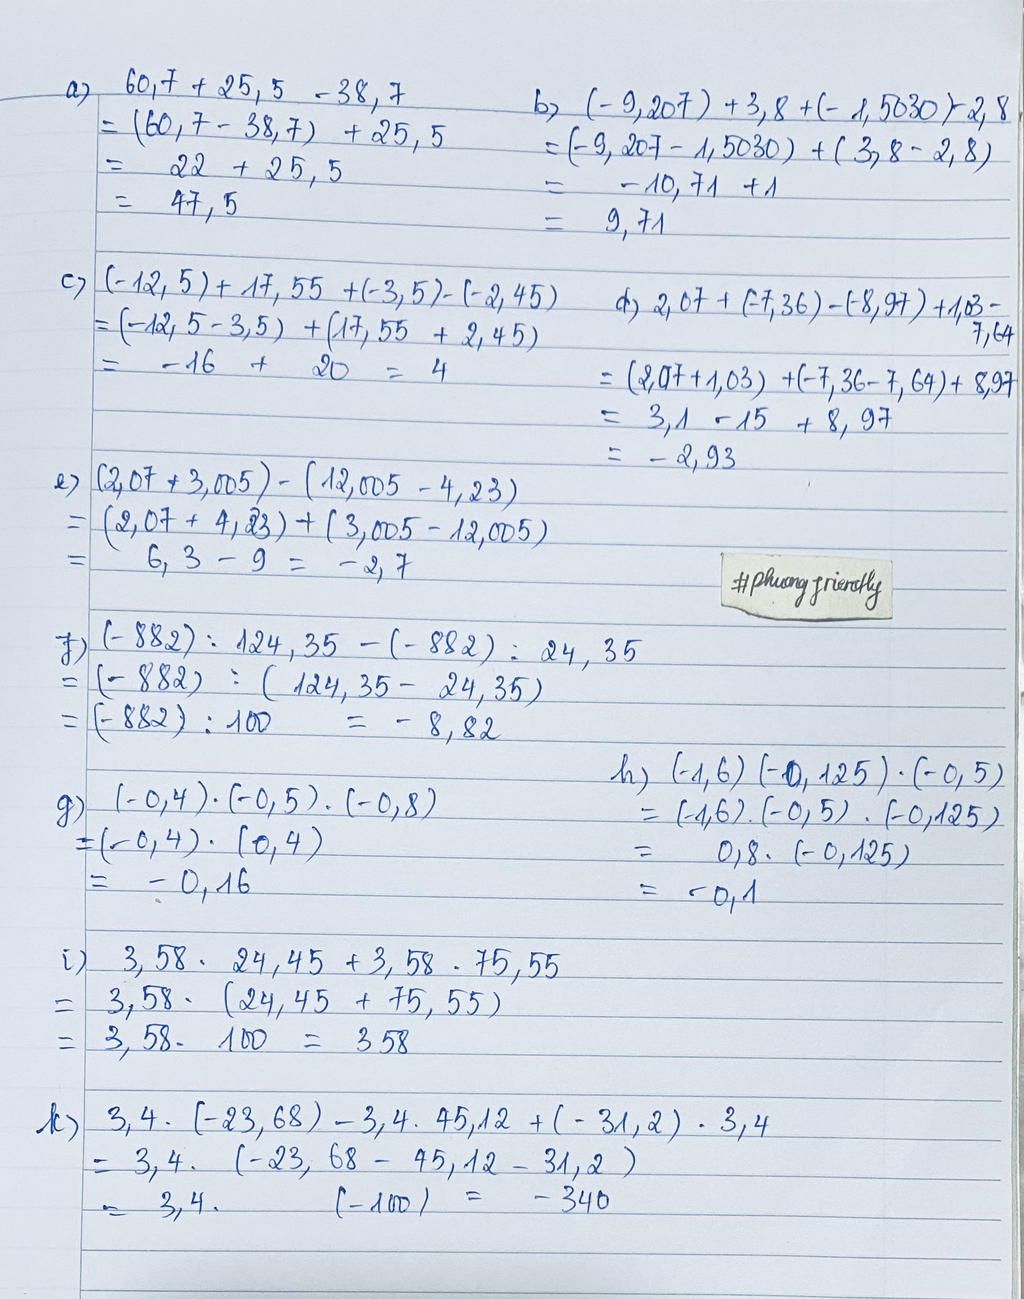 a) 60,7 + 25,5 - 38,7
= (60,7 - 38,7) + 25,5
= 22 + 25,5
= 47,5
b) (-9,207) + 3,8 + (-1,5030) - 2,8
= (-9,207 - 1,5030) + (3,8 - 2,8)
= -10,71 + 1
= 9,71
c) (-12,5) + 17,55 + (-3,5) - (-2,45)
= (-12,5 - 3,5) + (17,55 + 2,45)
= -16 + 20 = 4
d) 2,07 + (-7,36) - (-8,97) + 1,03 -
7,64
= (2,07 + 1,03) + (-7,36 - 7,64) + 8,97
= 3,1 - 15 + 8,97
= -2,93
e) (2,07 + 3,005) - (12,005 - 4,23)
= (2,07 + 4,23) + (3,005 - 12,005)
= 6,3 - 9 = -2,7
#phuong friendly
f) (-882) : 124,35 - (-882) : 24,35
= (-882) : (124,35 - 24,35)
= (-882) : 100 = -8,82
g) (-0,4) . (-0,5) . (-0,8)
= (-0,4) . (0,4)
= -0,16
h) (-1,6) (-0,125) . (-0,5)
= (-1,6) . (-0,5) . (-0,125)
= 0,8 . (-0,125)
= -0,1
i) 3,58 . 24,45 + 3,58 . 75,55
= 3,58 . (24,45 + 75,55)
= 3,58 . 100 = 358
k) 3,4 . (-23,68) - 3,4 . 45,12 + (-31,2) . 3,4
= 3,4 . (-23,68 - 45,12 - 31,2)
= 3,4 . (-100) = -340